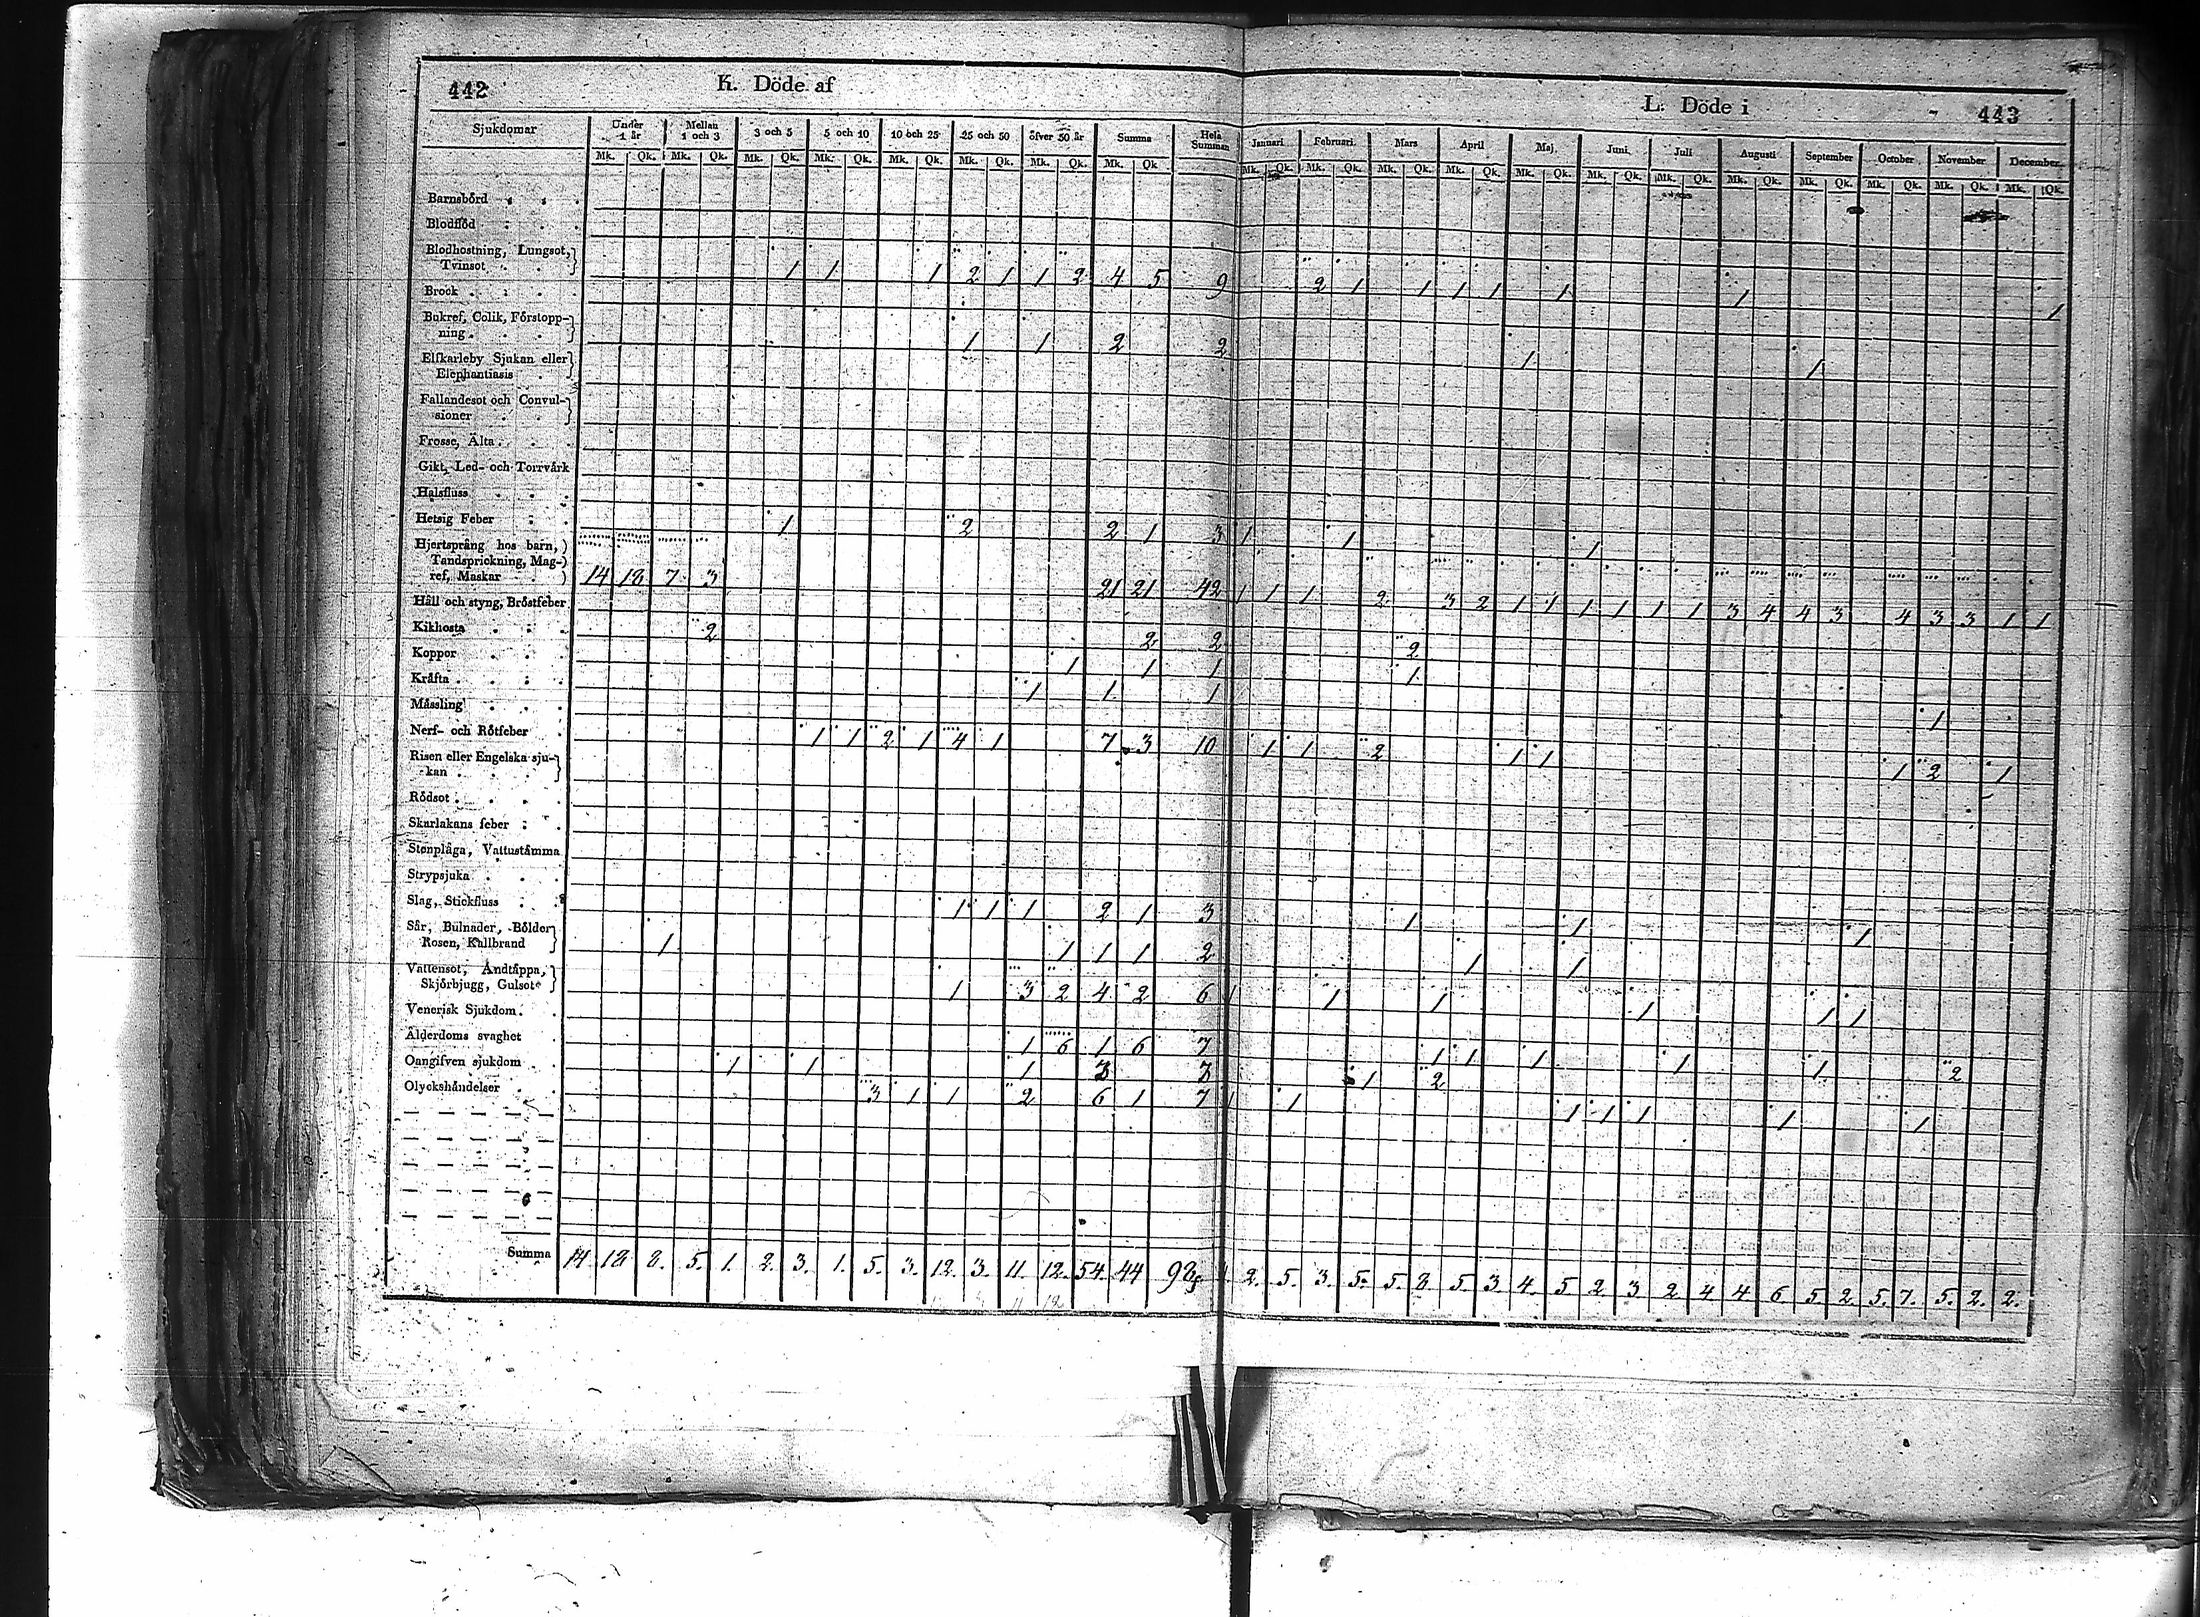 442 K. Döde af
L. Döde i 443
Sjukdomar Under 1 år Mellan 1 och 3 3 och 5 5 och 10 10 och 25 25 och 50 öfver 50 år Summa Hela Summan Januari Februari Mars April Maj Juni Juli Augusti September October November December
Mk. Qk. Mk. Qk. Mk. Qk. Mk. Qk. Mk. Qk. Mk. Qk. Mk. Qk. Mk. Qk Mk. Qk. Mk. Qk. Mk. Qk. Mk. Qk. Mk. Qk. Mk. Qk. Mk. Qk. Mk. Qk. Mk. Qk. Mk. Qk. Mk. Qk. Mk. Qk.
Barnsbörd
Blodflöd
Blodhostning, Lungsot,
Tvinsot 1 1 1 2 1 1 2 4 5 9 2 1 1 1 1 1 1 1
Brock
Bukref, Colik, Förstopp-
ning 1 1 2 2 1 1
Elfkarleby Sjukan eller
Elephantiasis
Fallandesot och Convul-
sioner
Frosse, Älta
Gikt, Led- och Torrvärk
Halsfluss
Hetsig Feber 1 2 2 1 3 1 1 1
Hjertsprång hos barn,
Tandsprickning, Mag-
ref, Maskar 14 18 7 3 21 21 42 1 1 1 2 3 2 1 1 1 1 1 1 3 4 4 3 4 3 3 1 1
Håll och styng, Bröstfeber
Kikhosta 2 2 2 2
Koppor 1 1 1 1
Kräfta 1 1 1 1
Mässling
Nerf- och Rötfeber 1 1 2 1 4 1 7 3 10 1 1 2 1 1 1 2 1
Risen eller Engelska sju-
kan
Rödsot
Skarlakans feber
Stenplåga, Vattustämma
Strypsjuka
Slag, Stickfluss 1 1 1 2 1 3 1 1 1
Sår, Bulnader, Bölder
Rosen, Kallbrand 1 1 1 1 2 1 1
Vattensot, Andtäppa,
Skjörbjugg, Gulsot 1 3 2 4 2 6 1 1 1 1 1 1
Venerisk Sjukdom
Ålderdoms svaghet 1 6 1 6 7 1 1 1 1 1 2
Oangifven sjukdom 1 1 1 3 3 1 2
Olyckshändelser 3 1 1 2 6 1 7 1 1 1 1 1 1 1
Summa 14. 18 8. 5. 1. 2. 3. 1. 5. 3. 12. 3. 11. 12. 54. 44 98 2. 5. 3. 5. 5. 8. 5. 3. 4. 5. 2 3 2 4 4 6. 5. 2. 5. 7. 5. 2. 2.